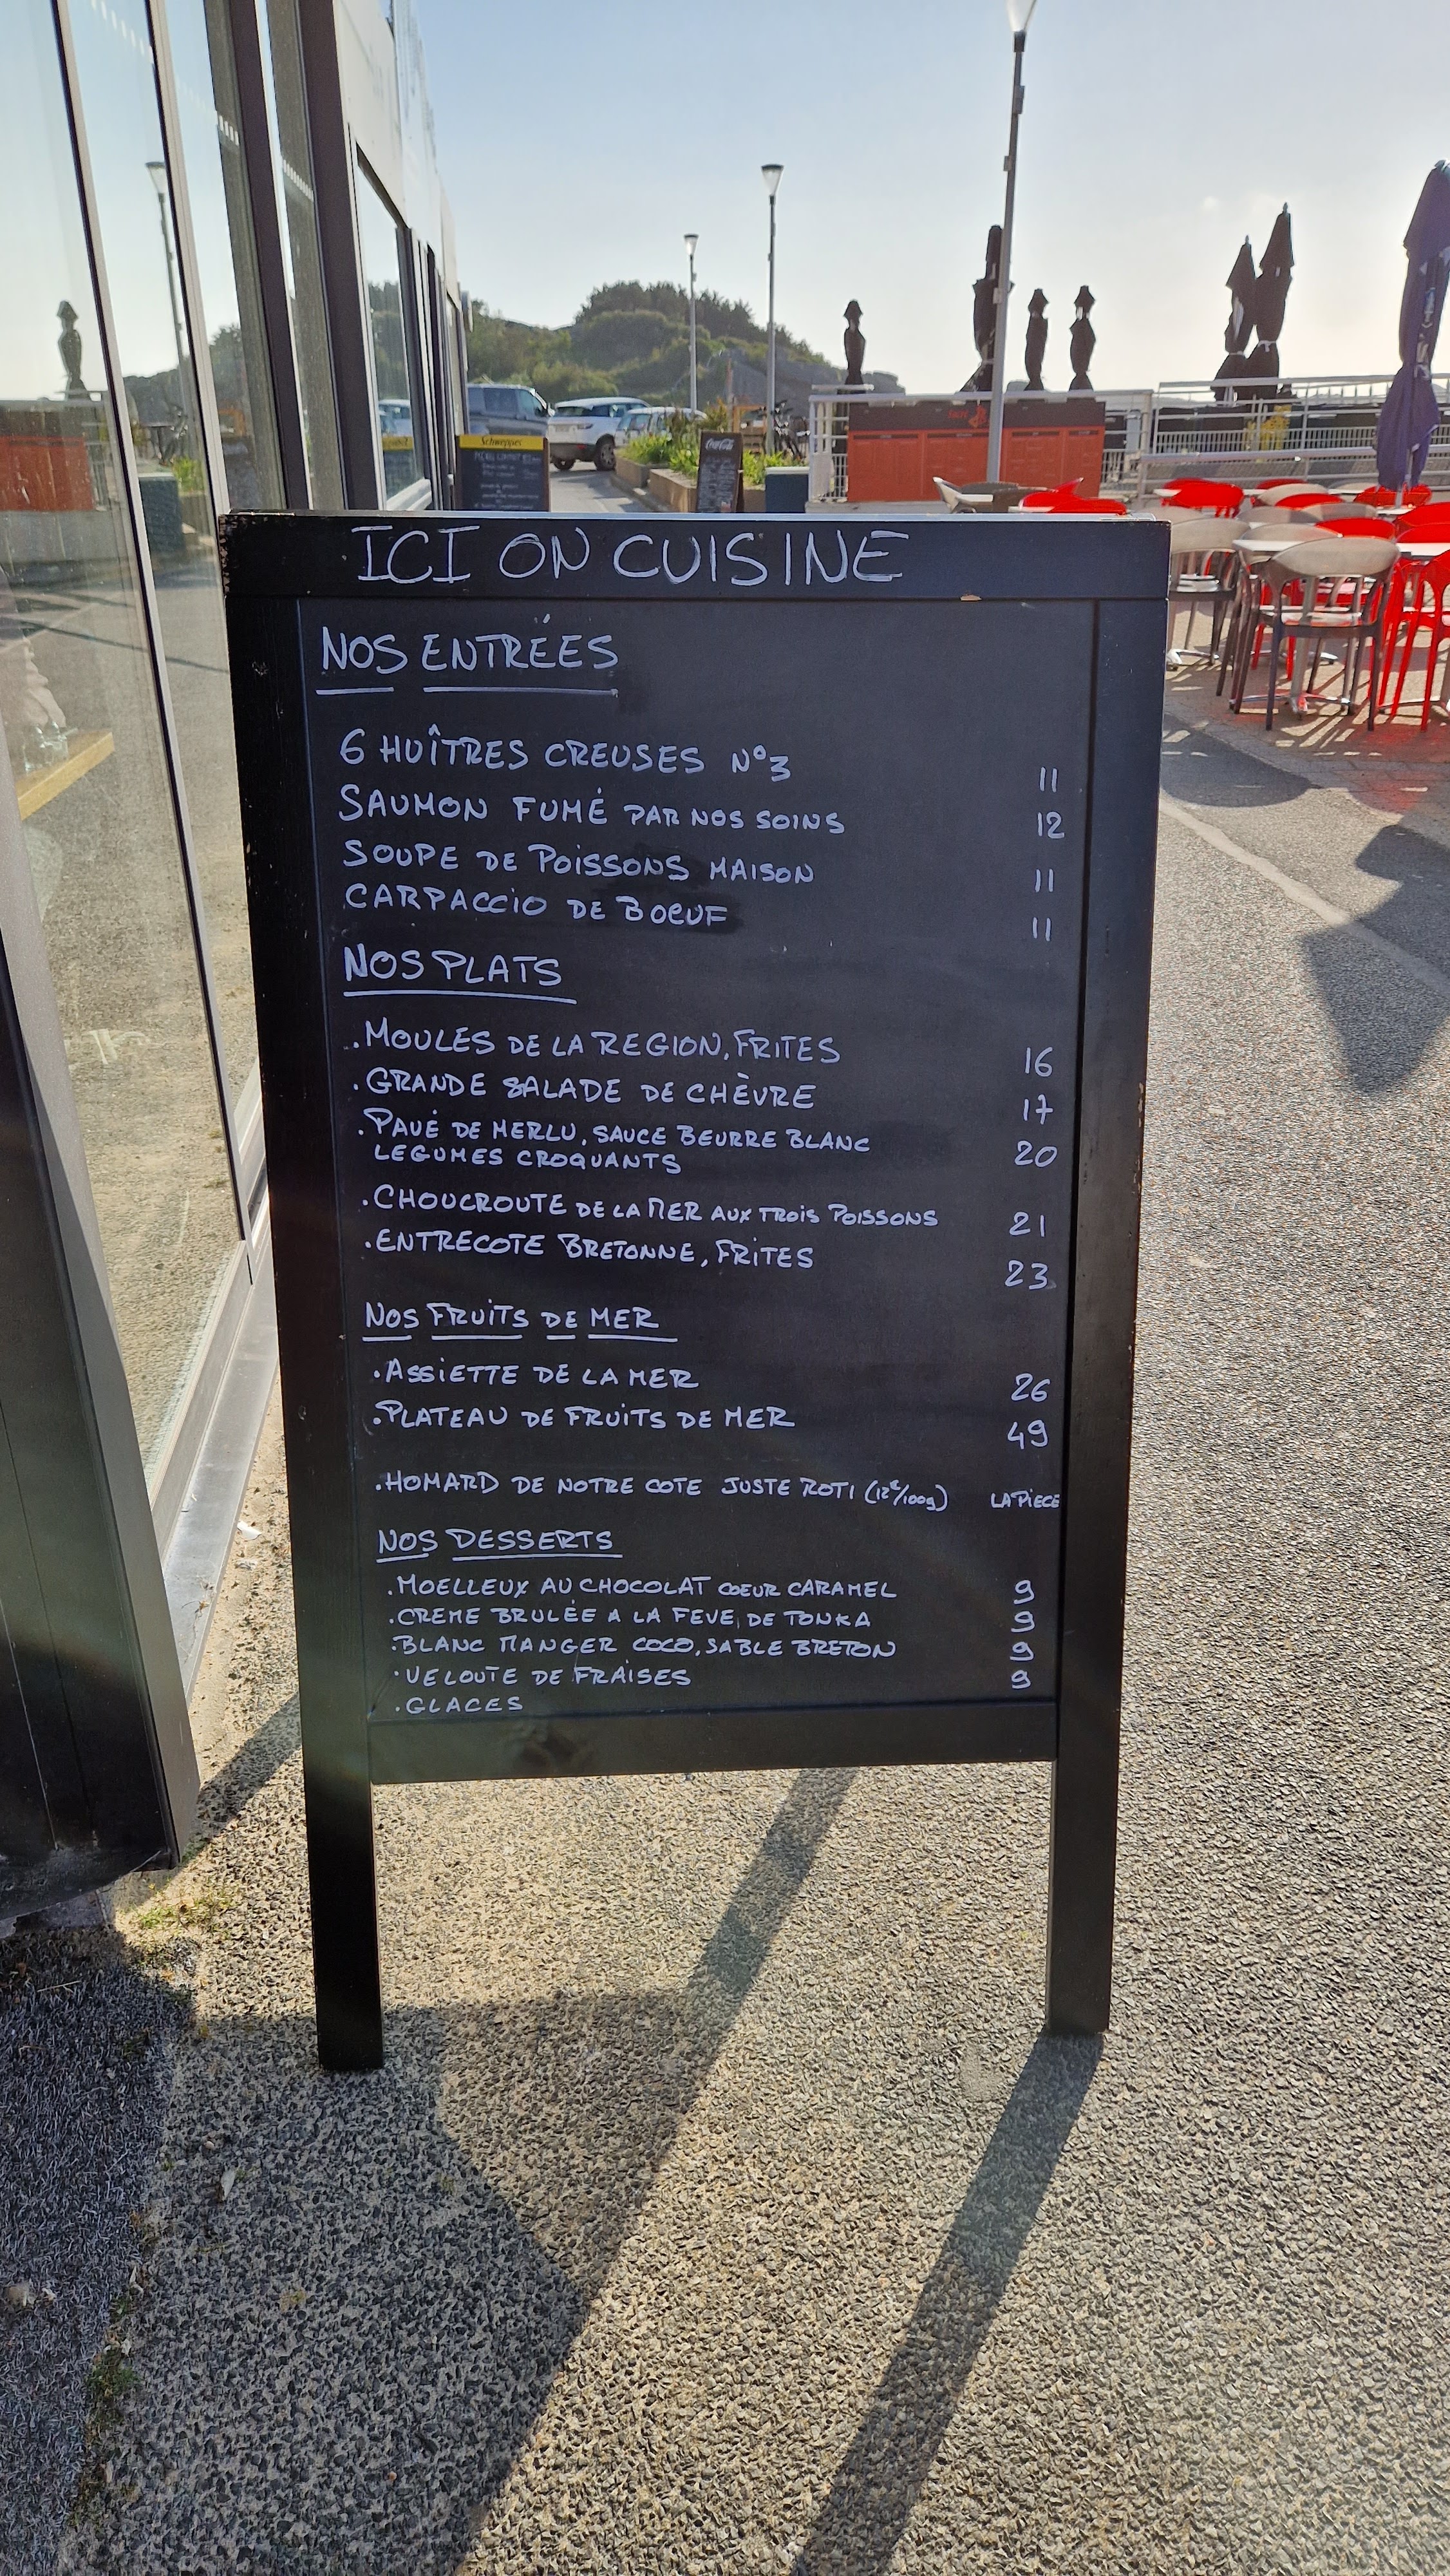 Schweppes
Coca-Cola
ICI ON CUISINE
NOS ENTRÉES
6 HUÎTRES CREUSES N°3 11
SAUMON FUMÉ PAR NOS SOINS 12
SOUPE DE POISSONS MAISON 11
CARPACCIO DE BOEUF 11
NOS PLATS
. MOULES DE LA REGION, FRITES 16
. GRANDE SALADE DE CHÈVRE 17
. PAVÉ DE MERLU, SAUCE BEURRE BLANC 20
LEGUMES CROQUANTS
. CHOUCROUTE DE LA MER AUX TROIS POISSONS 21
. ENTRECOTE BRETONNE, FRITES 23
NOS FRUITS DE MER
. ASSIETTE DE LA MER 26
. PLATEAU DE FRUITS DE MER 49
. HOMARD DE NOTRE COTE JUSTE ROTI (12€/100g) LA PIECE
NOS DESSERTS
. MOELLEUX AU CHOCOLAT COEUR CARAMEL 9
. CREME BRULÉE A LA FEVE DE TONKA 9
. BLANC MANGER COCO, SABLE BRETON 9
. VELOUTE DE FRAISES 9
. GLACES